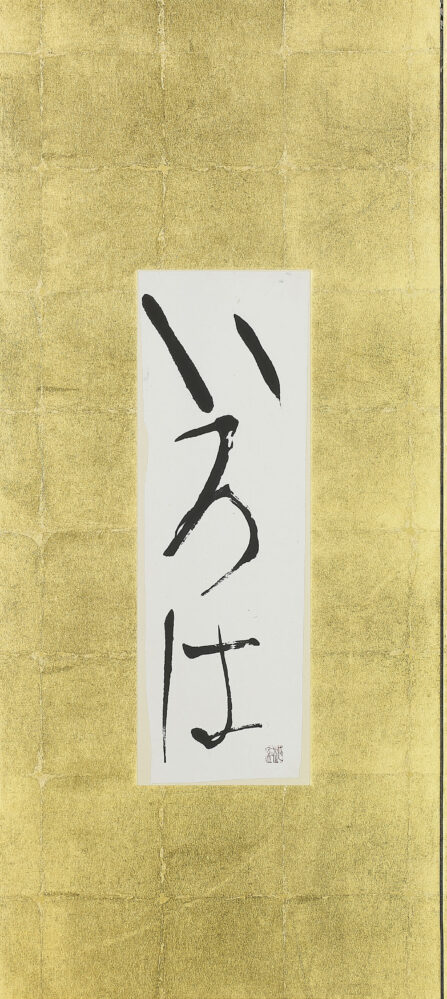 いろは